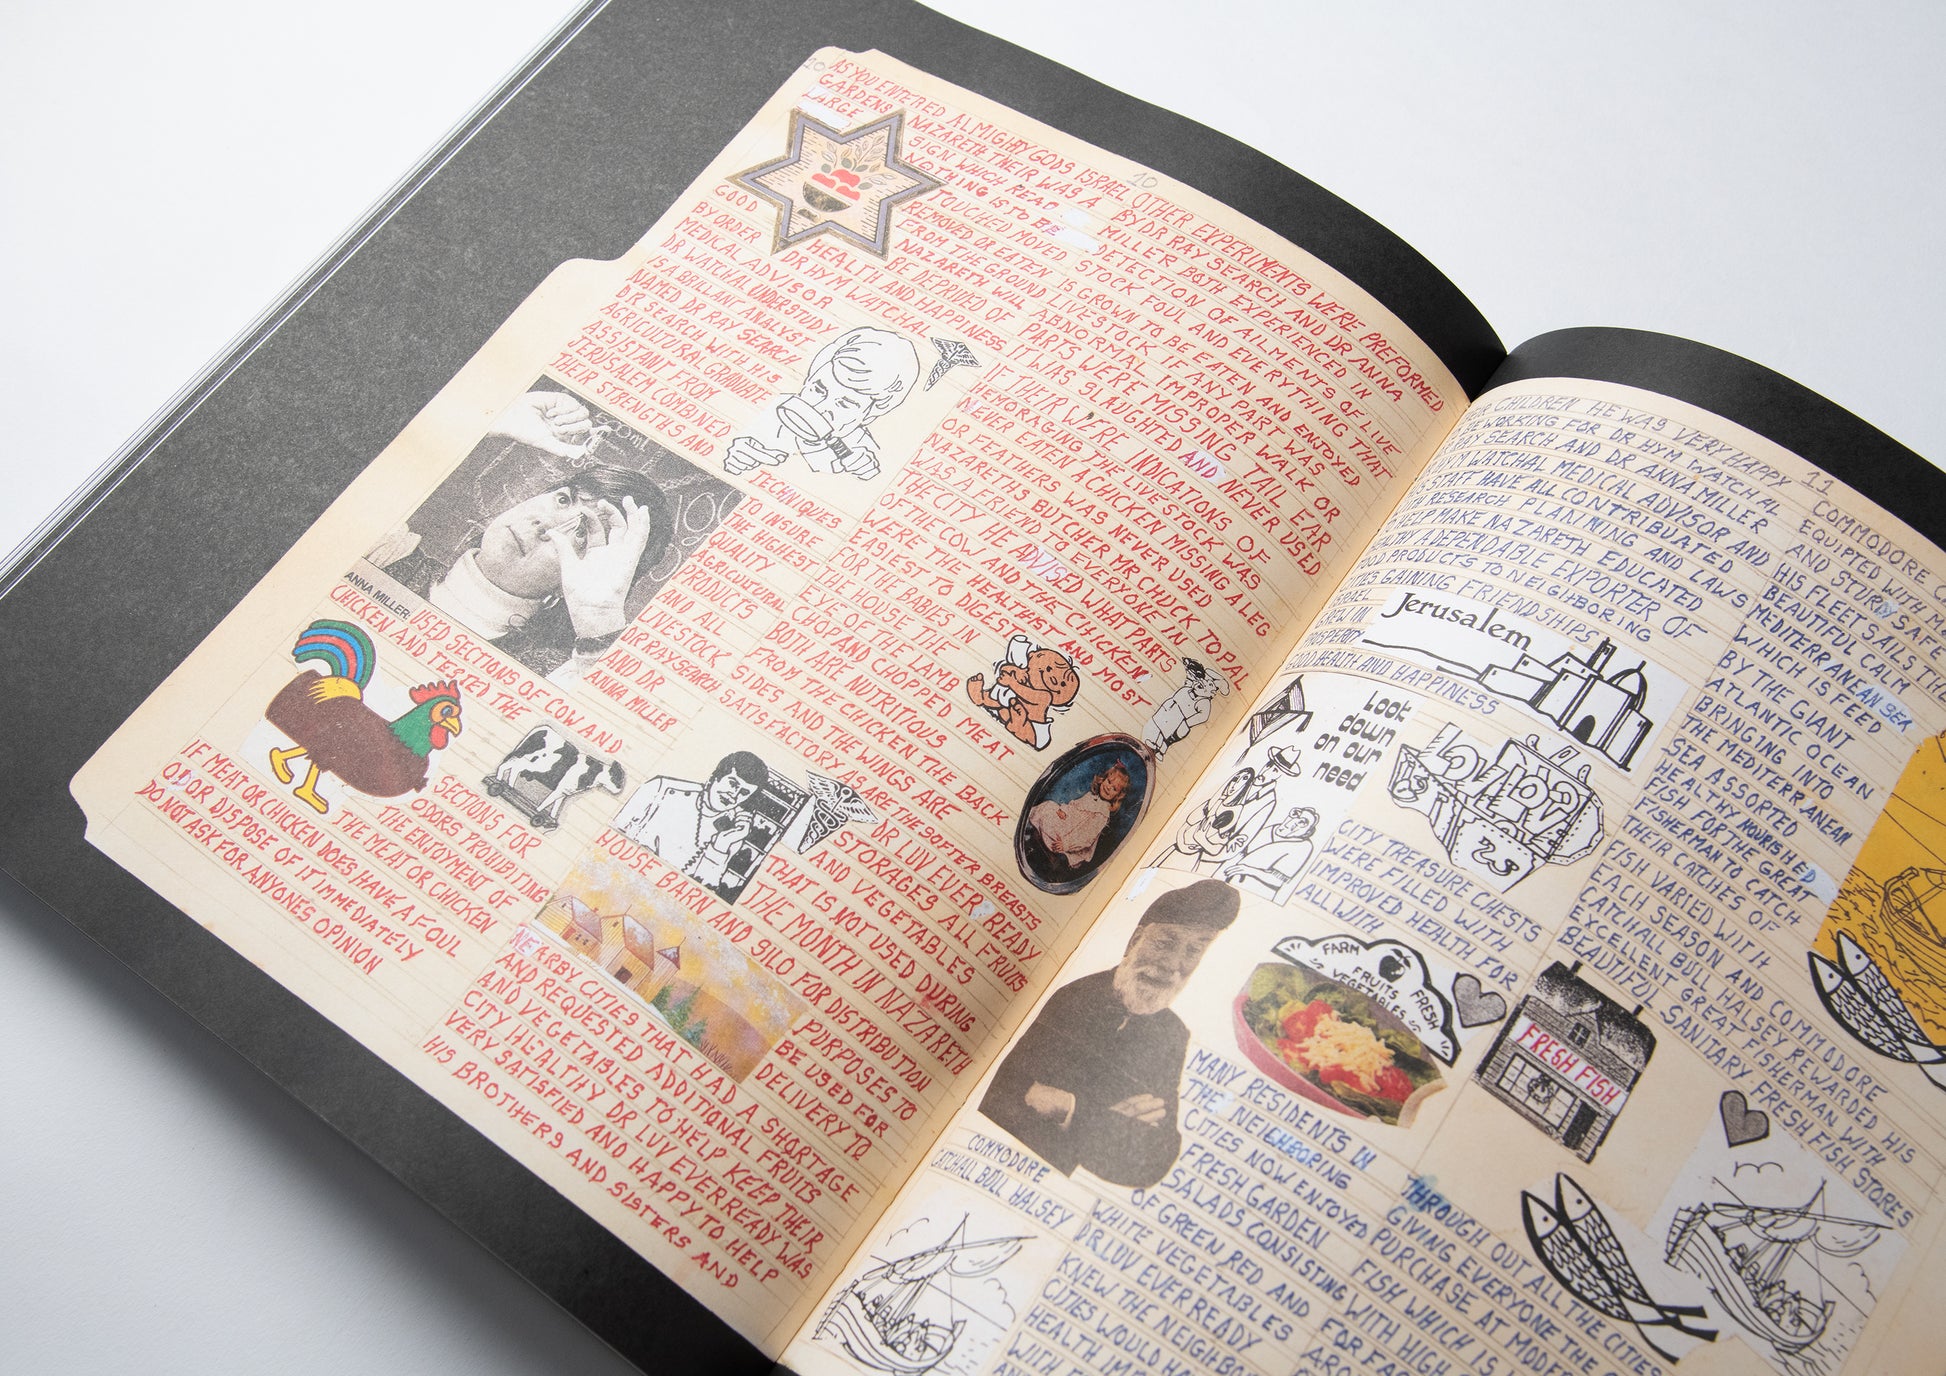 10
10
AS YOU ENTERED ALMIGHTY GODS ISRAEL
GARDENS NAZARETH THEIR WAS A
LARGE SIGN WHICH READ
NOTHING IS TO BE
TOUCHED MOVED
REMOVED OR EATEN
FROM THE GROUND
NAZARETH WILL
BE DEPRIVED OF
GOOD HEALTH AND HAPPINESS
BY ORDER DR HYM WATCHAL
MEDICAL ADVISOR
DR WATCHAL UNDERSTUDY
IS A BRILLANT ANALYST
NAMED DR RAY SEARCH
DR SEARCH WITH HIS
AGRICULTURAL GRADUATE
ASSISTANT FROM
JERUSALEM COMBINED
THEIR STRENGTHS AND
TECHNIQUES
TO INSURE
THE HIGHEST
QUALITY
AGRICULTURAL
PRODUCTS
AND ALL
LIVESTOCK
DR RAY SEARCH
AND DR
ANNA MILLER
ANNA MILLER:
USED SECTIONS OF COW AND
CHICKEN AND TESTED THE
SECTIONS FOR
ODORS PROHIBITING
THE ENJOYMENT OF
THE MEAT OR CHICKEN
IF MEAT OR CHICKEN DOES HAVE A FOUL
ODOR DISPOSE OF IT IMMEDIATELY
DO NOT ASK FOR ANYONES OPINION
OTHER EXPERIMENTS WERE PREFORMED
BY DR RAY SEARCH AND DR ANNA
MILLER BOTH EXPERIENCED IN
DETECTION OF AILMENTS OF LIVE
STOCK FOUL AND EVERYTHING THAT
IS GROWN TO BE EATEN AND ENJOYED
LIVESTOCK IF ANY PART WAS
ABNORMAL IMPROPER WALK OR
PARTS WERE MISSING TAIL EAR
IT WAS SLAUGHTED AND NEVER USED
IF THEIR WERE INDICATIONS OF
HEMORAGING THE LIVE STOCK WAS
NEVER EATEN A CHICKEN MISSING A LEG
OR FEATHERS WAS NEVER USED
NAZARETHS BUTCHER MR CHUCK TOPAL
WAS A FRIEND TO EVERYONE IN
THE CITY HE ADVISED WHAT PARTS
OF THE COW AND THE CHICKEN
WERE THE HEALTHIEST AND MOST
EASIEST TO DIGEST
FOR THE BABIES IN
THE HOUSE THE
EYE OF THE LAMB
CHOP AND CHOPPED MEAT
BOTH ARE NUTRITIOUS
FROM THE CHICKEN THE BACK
SIDES AND THE WINGS ARE
SATISFACTORY AS ARE THE SOFTER BREASTS
DR LUV EVER READY
STORAGES ALL FRUITS
AND VEGETABLES
THAT IS NOT USED DURING
THE MONTH IN NAZARETH
HOUSE BARN AND SILO FOR DISTRIBUTION
PURPOSES TO
BE USED FOR
DELIVERY TO
NEARBY CITIES THAT HAD A SHORTAGE
AND REQUESTED ADDITIONAL FRUITS
AND VEGETABLES TO HELP KEEP THEIR
CITY HEALTHY DR LUV EVERREADY WAS
VERY SATISFIED AND HAPPY TO HELP
HIS BROTHERS AND SISTERS AND
11
CHILDREN HE WAS VERY HAPPY
WORKING FOR DR HYM WATCHAL
RAY SEARCH AND DR ANNA MILLER
WATCHAL MEDICAL ADVISOR AND
STAFF HAVE ALL CONTRIBUATED
RESEARCH PLANIMING AND LAWS
HELP MAKE NAZARETH EDUCATED
A DEPENDABLE EXPORTER OF
FOOD PRODUCTS TO NEIGHBORING
CITIES GAINING FRIENDSHIPS
GOOD HEALTH AND HAPPINESS
Jerusalem
Look
down
on our
need
CITY TREASURE CHESTS
WERE FILLED WITH
IMPROVED HEALTH FOR
ALL WITH
FARM
FRESH
FRUITS
VEGETABLES
FRESH FISH
MANY RESIDENTS IN
THE NEIGHBORING
CITIES NOW ENJOYED
FRESH GARDEN
SALADS CONSISTING
OF GREEN RED AND
WHITE VEGETABLES
DR LUV EVER READY
KNEW THE NEIGHBO
CITIES WOULD HA
HEALTH IMP
COMMODORE
CATCHALL BULL HALSEY
COMMODORE
EQUIPTED WITH
AND STURDY SAFE
HIS FLEET SAILS THE
BEAUTIFUL CALM
MEDITERRANEAN SEA
WHICH IS FEED
BY THE GIANT
ATLANTIC OCEAN
BRINGING INTO
THE MEDITERRANEAN
SEA ASSORTED
HEALTHY NOURISHED
FISH FOR THE GREAT
FISHERMAN TO CATCH
THEIR CATCHES OF
FISH VARIED WITH
EACH SEASON AND COMMODORE
CATCHALL BULL HALSEY REWARDED HIS
EXCELLENT GREAT FISHERMAN WITH
BEAUTIFUL SANITARY FRESH FISH STORES
THROUGH OUT ALL THE CITIES
GIVING EVERYONE THE
PURCHASE AT MODER
FISH WHICH IS
WITH HIGH